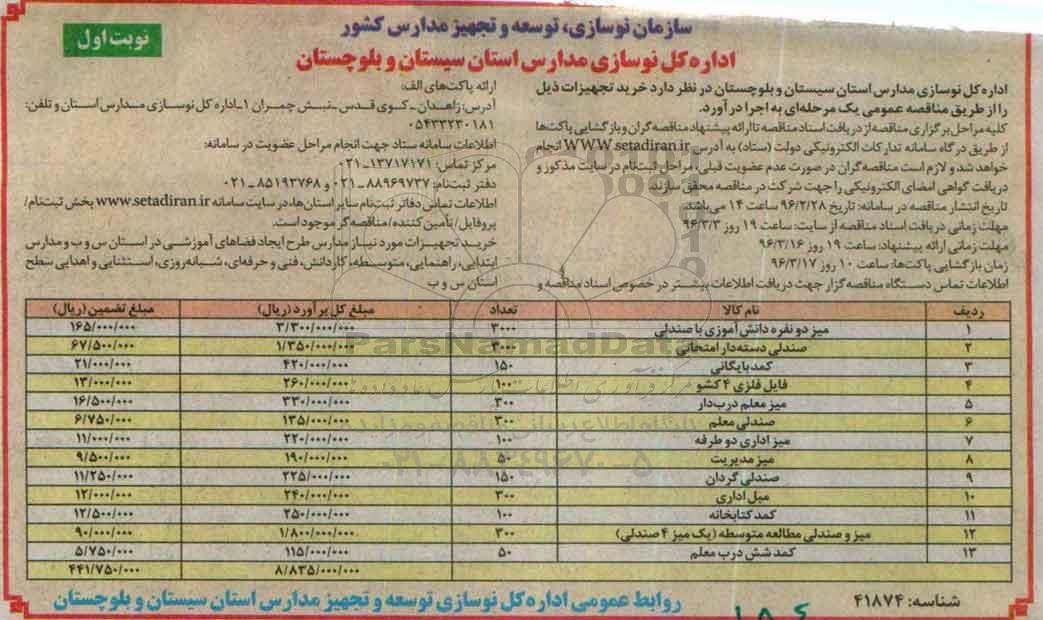 سازمان نوسازی، توسعه و تجهیز مدارس کشور
نوبت اول
اداره کل نوسازی مدارس استان سیستان و بلوچستان
اداره کل نوسازی مدارس استان سیستان و بلوچستان در نظر دارد خرید تجهیزات ذیل
را از طریق مناقصه عمومی یک مرحله‌ای به اجرا در آورد.
کلیه مراحل برگزاری مناقصه از دریافت اسناد مناقصه تا ارائه پیشنهاد مناقصه گران و بازگشایی پاکت‌ها
از طریق درگاه سامانه تدارکات الکترونیکی دولت (ستاد) به آدرس WWW.setadiran.ir انجام
خواهد شد و لازم است مناقصه گران در صورت عدم عضویت قبلی، مراحل ثبت‌نام در سایت مذکور و
دریافت گواهی امضای الکترونیکی را جهت شرکت در مناقصه محقق سازند.
تاریخ انتشار مناقصه در سامانه: تاریخ ۹۶/۲/۲۸ ساعت ۱۴ می‌باشد.
مهلت زمانی دریافت اسناد مناقصه از سایت: ساعت ۱۹ روز ۹۶/۳/۳
مهلت زمانی ارائه پیشنهاد: ساعت ۱۹ روز ۹۶/۳/۱۶
زمان بازگشایی پاکت‌ها: ساعت ۱۰ روز ۹۶/۳/۱۷
اطلاعات تماس دستگاه مناقصه گزار جهت دریافت اطلاعات بیشتر در خصوص اسناد مناقصه و
ارائه پاکت‌های الف:
آدرس: زاهدان ـ کوی قدس ـ نبش چمران ۱ـ اداره کل نوسازی مدارس استان و تلفن:
۰۵۴۳۳۲۳۰۱۸۱
اطلاعات سامانه ستاد جهت انجام مراحل عضویت در سامانه:
مرکز تماس: ۱۳۷۱۷۱۷۱-۰۲۱
دفتر ثبت‌نام: ۸۸۹۶۹۷۳۷-۰۲۱ و ۸۵۱۹۳۷۶۸-۰۲۱
اطلاعات تماس دفاتر ثبت‌نام سایر استان‌ها، در سایت سامانه www.setadiran.ir بخش ثبت‌نام/
پروفایل/ تأمین کننده/ مناقصه‌گر موجود است.
خرید تجهیزات مورد نیاز مدارس طرح ایجاد فضاهای آموزشی در استان س و ب و مدارس
ابتدایی، راهنمایی، متوسطه، کاردانش، فنی و حرفه‌ای، شبانه‌روزی، استثنایی و اهدایی سطح
استان س و ب
ردیف نام کالا تعداد مبلغ کل برآورد (ریال) مبلغ تضمین (ریال)
۱ میز دو نفره دانش آموزی با صندلی ۳۰۰۰ ۳/۳۰۰/۰۰۰/۰۰۰ ۱۶۵/۰۰۰/۰۰۰
۲ صندلی دسته‌دار امتحانی ۳۰۰۰ ۱/۳۵۰/۰۰۰/۰۰۰ ۶۷/۵۰۰/۰۰۰
۳ کمد بایگانی ۱۵۰ ۴۲۰/۰۰۰/۰۰۰ ۲۱/۰۰۰/۰۰۰
۴ فایل فلزی ۴ کشو ۱۰۰ ۲۶۰/۰۰۰/۰۰۰ ۱۳/۰۰۰/۰۰۰
۵ میز معلم درب‌دار ۳۰۰ ۳۳۰/۰۰۰/۰۰۰ ۱۶/۵۰۰/۰۰۰
۶ صندلی معلم ۳۰۰ ۱۳۵/۰۰۰/۰۰۰ ۶/۷۵۰/۰۰۰
۷ میز اداری دو طرفه ۱۰۰ ۲۲۰/۰۰۰/۰۰۰ ۱۱/۰۰۰/۰۰۰
۸ میز مدیریت ۵۰ ۱۹۰/۰۰۰/۰۰۰ ۹/۵۰۰/۰۰۰
۹ صندلی گردان ۱۵۰ ۲۲۵/۰۰۰/۰۰۰ ۱۱/۲۵۰/۰۰۰
۱۰ مبل اداری ۳۰۰ ۲۴۰/۰۰۰/۰۰۰ ۱۲/۰۰۰/۰۰۰
۱۱ کمد کتابخانه ۱۰۰ ۲۵۰/۰۰۰/۰۰۰ ۱۲/۵۰۰/۰۰۰
۱۲ میز و صندلی مطالعه متوسطه (یک میز ۴ صندلی) ۳۰۰ ۱/۸۰۰/۰۰۰/۰۰۰ ۹۰/۰۰۰/۰۰۰
۱۳ کمد شش درب معلم ۵۰ ۱۱۵/۰۰۰/۰۰۰ ۵/۷۵۰/۰۰۰
۸/۸۳۵/۰۰۰/۰۰۰ ۴۴۱/۷۵۰/۰۰۰
ParsNamadData
۰۲۱-۸۸۳۴۹۶۷۰-۵
شناسه: ۴۱۸۷۴
روابط عمومی اداره کل نوسازی توسعه و تجهیز مدارس استان سیستان و بلوچستان